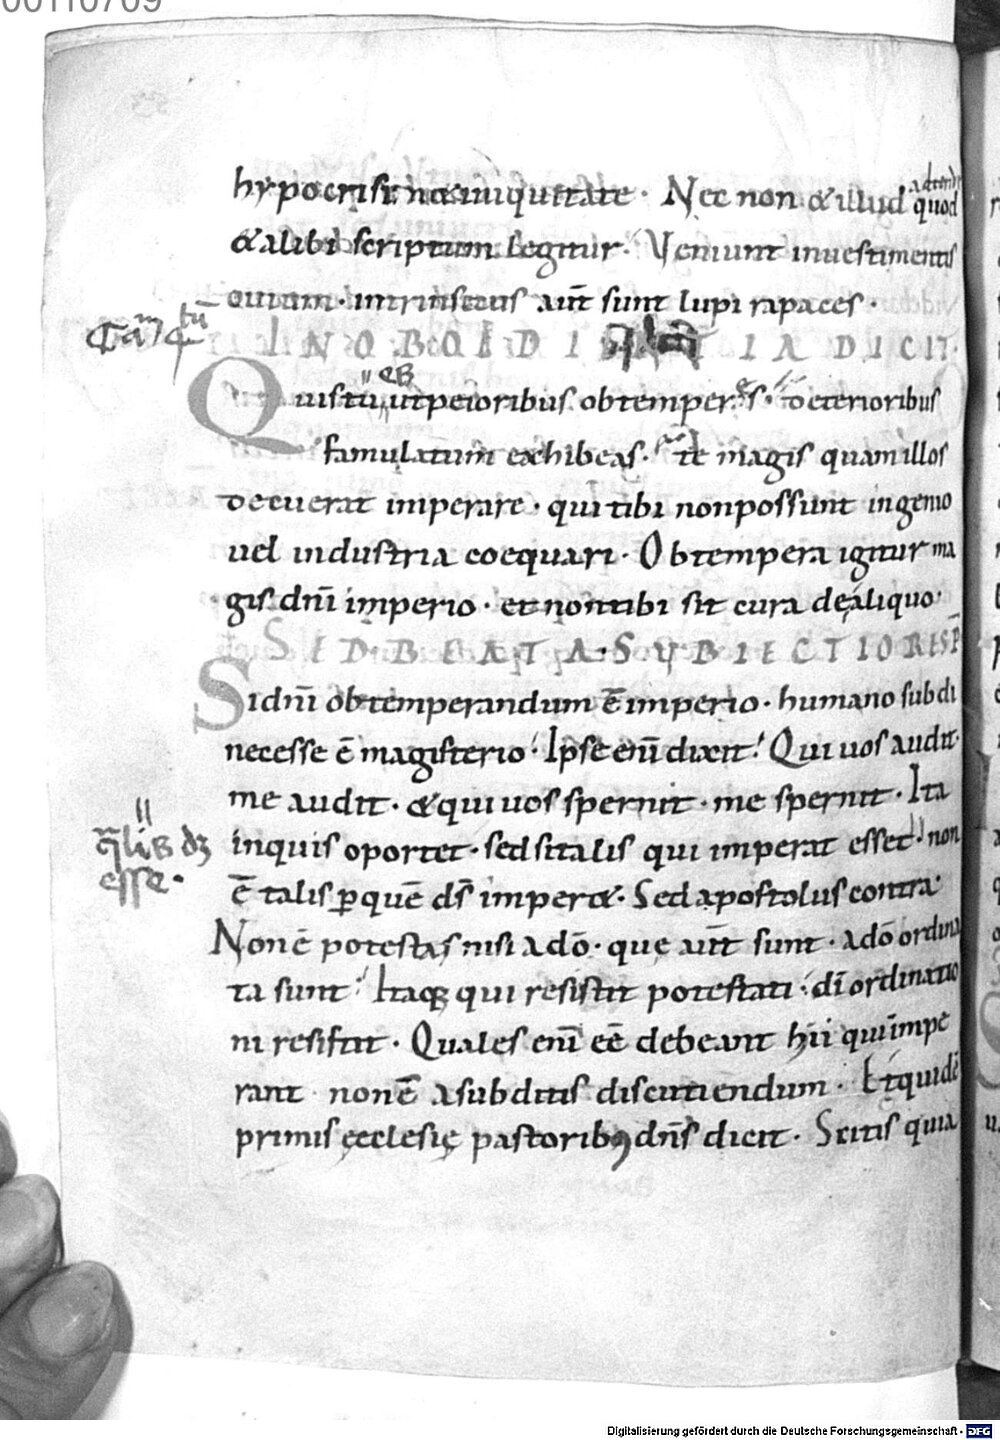 00110709
hypocrisi & iniquitate · Nec non & illud quod
& alibi scriptum legitur · Veniunt in uestimentis
ouium · intrinsecus aut̄ sunt lupi rapaces ·
INOBOEDIENTIA DICIT
Quis tu ut peioribus obtemperes · deterioribus
famulatum exhibeas · te magis quam illos
decuerat imperare · qui tibi non possunt ingenio
uel industria coequari · Obtempera igitur ma
gis dn̄i imperio · et non tibi sit cura de aliquo ·
SED BEATA SUBIECTIO RESP̄
Si dn̄i obtemperandum ē imperio · humano subdi
necesse ē magisterio · Ipse enī dixit · Qui uos audit ·
me audit · & qui uos spernit · me spernit · Ita
q̄lib& dꝫ
esse ·
inquis oportet · sed si talis qui imperat esset · non
ē talis ꝑ quē ds̄ imper& · Sed apostolus contra ·
Non ē potestas nisi a dō · quę aut̄ sunt · a dō ordina
ta sunt · Itaqꝫ qui resistit potestati · dī ordinatio
ni resistit · Quales enī eē debeant hii qui impe
rant non ē a subditis discutiendum · Et quidē
primis ęcclesię pastoribꝰ dn̄s dicit · Scitis quia
Digitalisierung gefördert durch die Deutsche Forschungsgemeinschaft - DFG